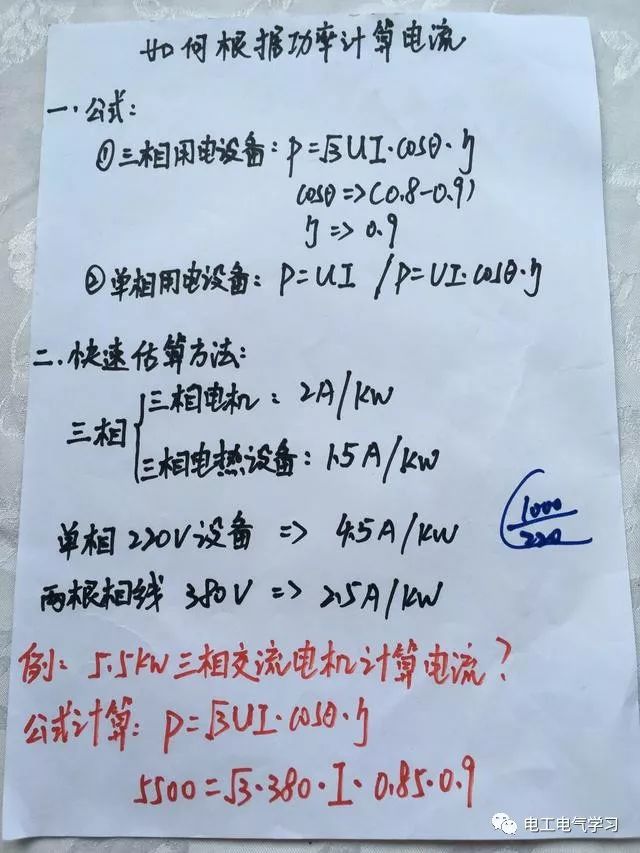 如何根据功率计算电流
一.公式:
①三相用电设备:P=√3UI·cosθ·η
cosθ=>(0.8-0.9)
η=>0.9
②单相用电设备:P=UI/P=UI·cosθ·η
二.快速估算方法:
三相
三相电机:2A/KW
三相电热设备:1.5A/KW
单相220V设备=>4.5A/KW
1000
220
两根相线380V=>2.5A/KW
例:5.5KW三相交流电机计算电流?
公式计算:P=√3UI·cosθ·η
5500=√3·380·I·0.85·0.9
电工电气学习